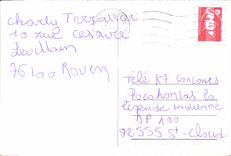 Charly Terzalvar
10 rue Césaire
Levillain
76100 Rouen
Télé K7 Concours
Pocahontas la
légende indienne
BP 400
92555 St-Cloud